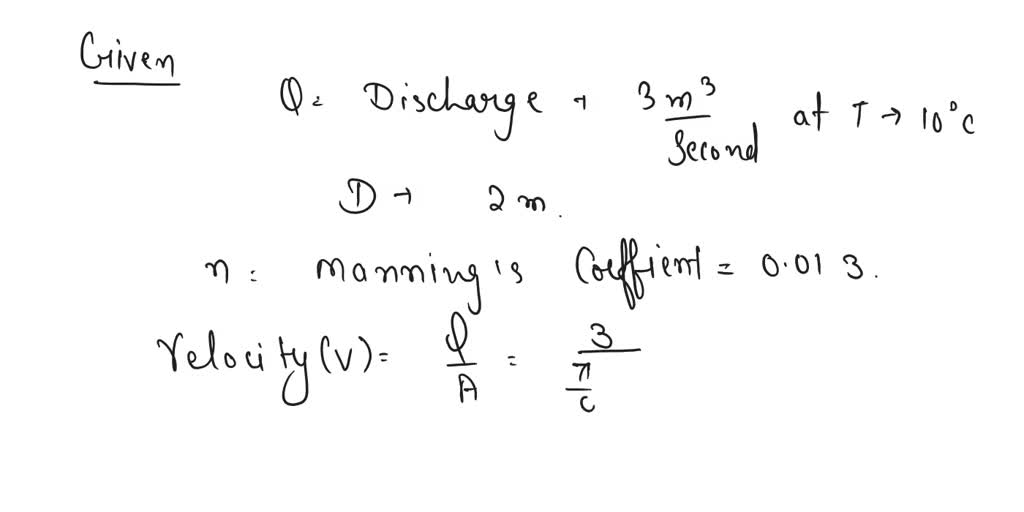 Given
Q = Discharge → 3 m³/second at T → 10°C
D → 2 m.
n = Manning's Coeffient = 0.013.
Velocity (V) = Q/A = 3/(π/c